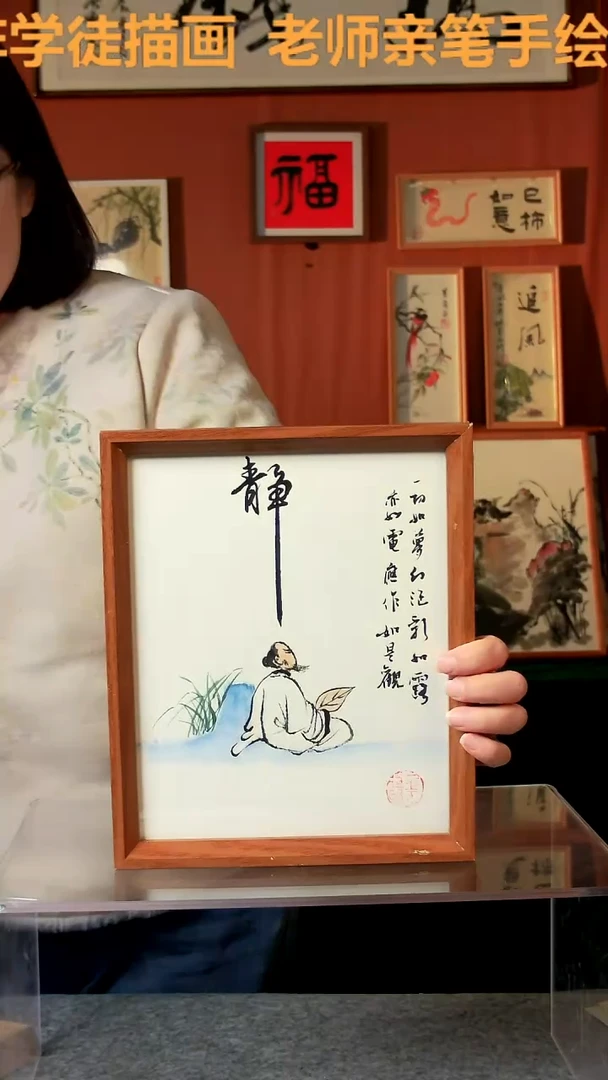 学徒描画 老师亲笔手绘
福
巳柿
如意
追風
静
一切如夢幻泡影如露
亦如電應作如是觀